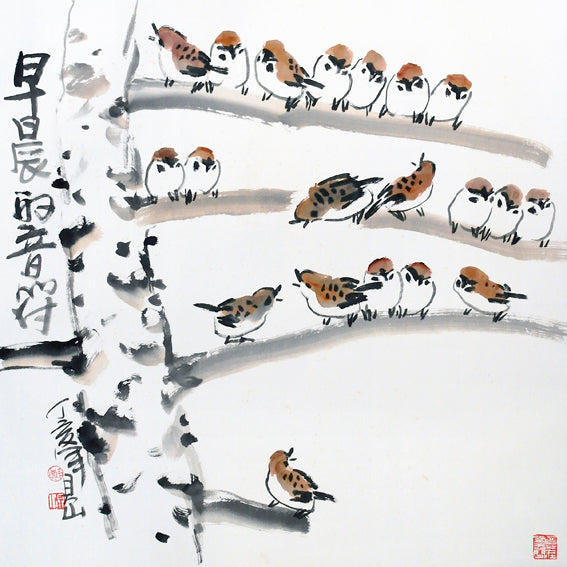 早晨的音符
丁亥年